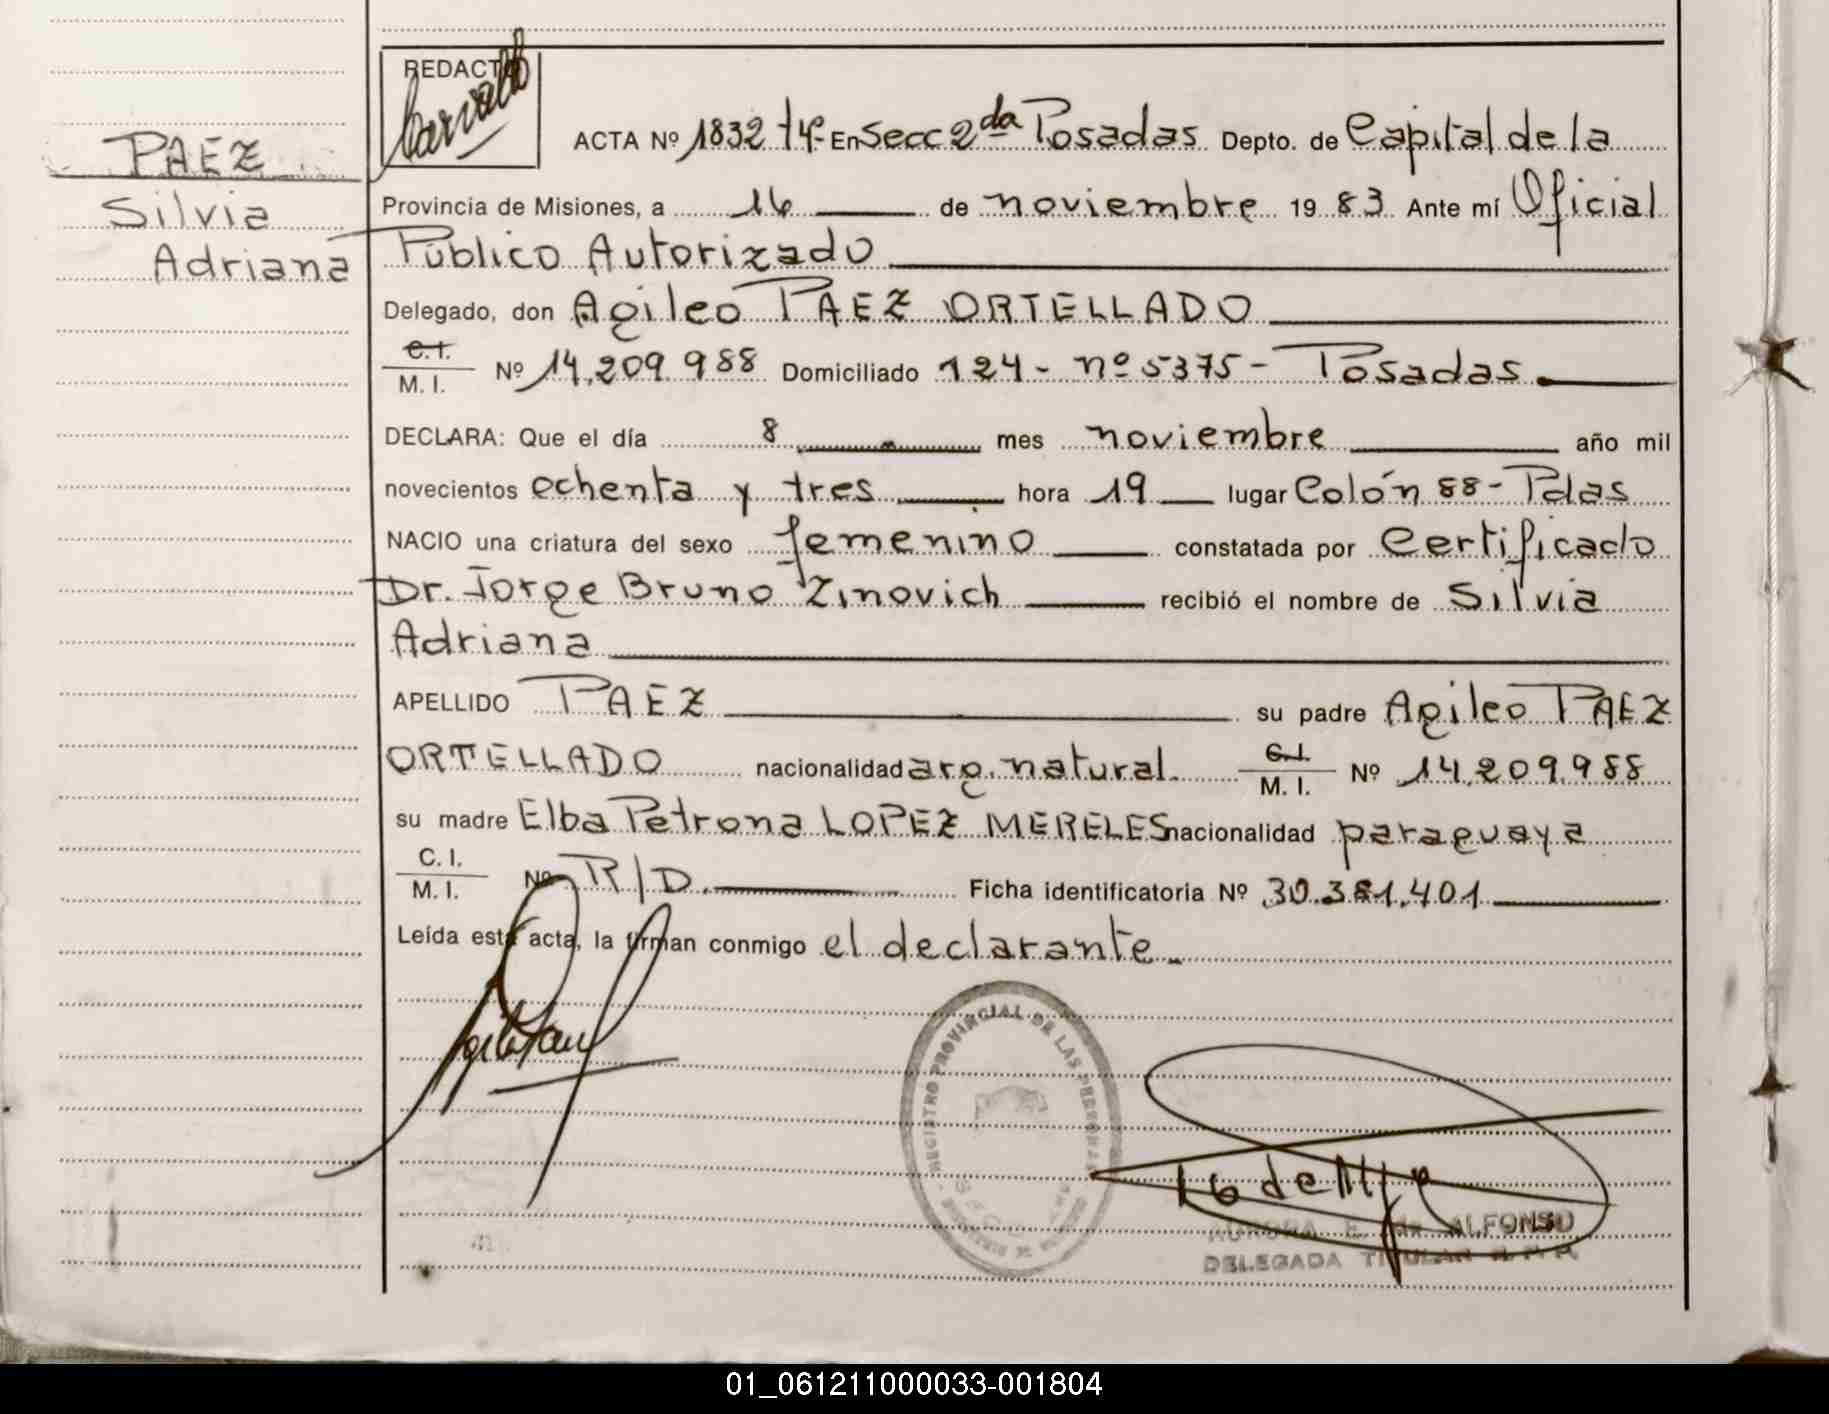 PAEZ
Silvia
Adriana
REDACTO
Carvallo
ACTA Nº 1832 tº4º- En Secc 2da Posadas Depto. de Capital de la
Provincia de Misiones, a 16 de noviembre 19 83 Ante mí Oficial
Público Autorizado
Delegado, don Agileo PAEZ ORTELLADO
C.I.
M. I. Nº 14.209.988 Domiciliado 124 - nº 5375 - Posadas
DECLARA: Que el día 8 mes noviembre año mil
novecientos ochenta y tres hora 19 lugar Colón 88 - Pdas
NACIO una criatura del sexo femenino constatada por Certificado
Dr. Jorge Bruno Zinovich recibió el nombre de Silvia
Adriana
APELLIDO PAEZ su padre Agileo PAEZ
ORTELLADO nacionalidad arg. natural. C.I.
M. I. Nº 14.209.988
su madre Elba Petrona LOPEZ MERELES nacionalidad paraguaya
C. I.
M. I. Nº R/D. Ficha identificatoria Nº 30.381.401
Leída esta acta, la firman conmigo el declarante.
REGISTRO PROVINCIAL DE LAS PERSONAS
AURORA E. de ALFONSO
DELEGADA TITULAR R. P. P.
01_061211000033-001804